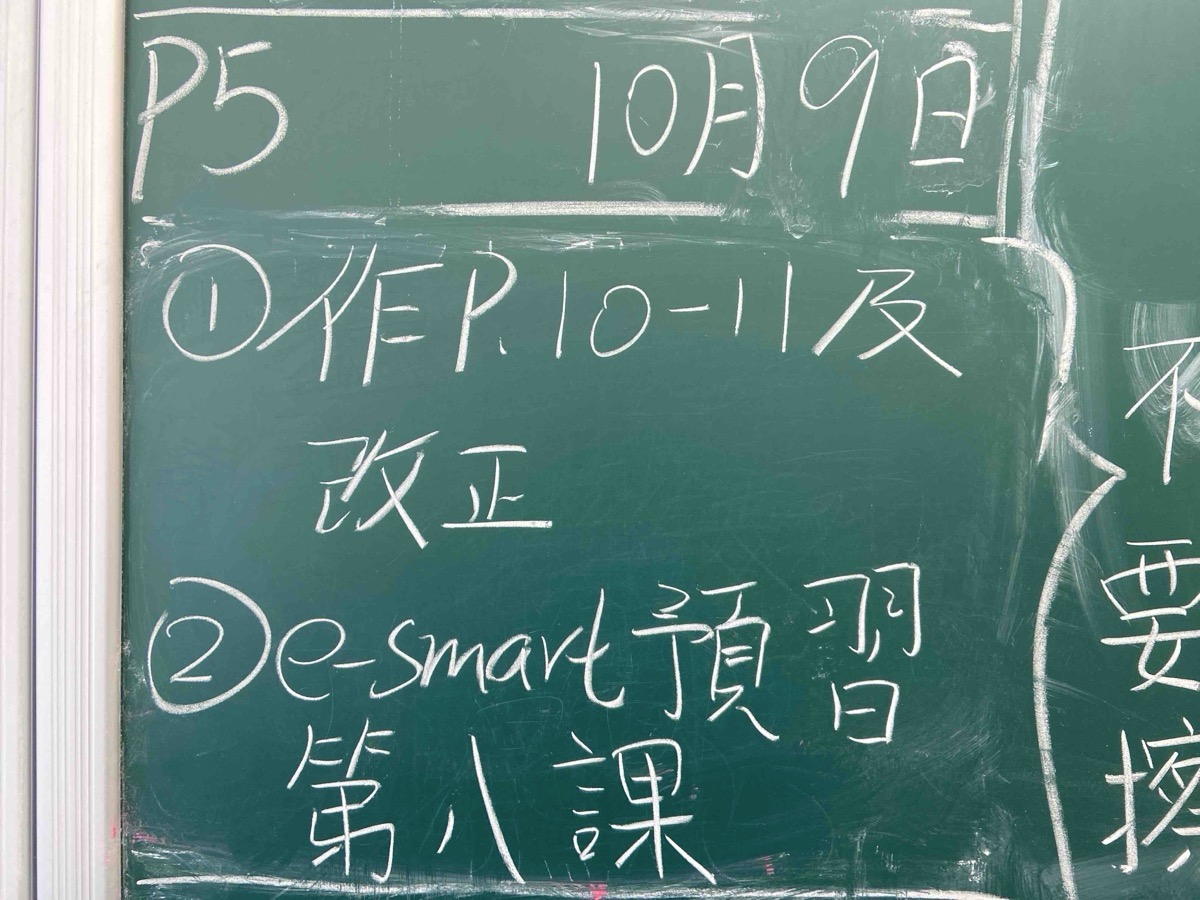 P5 10月9日
①作P.10-11及
改正
②e-smart預習
第八課
不
要
擦